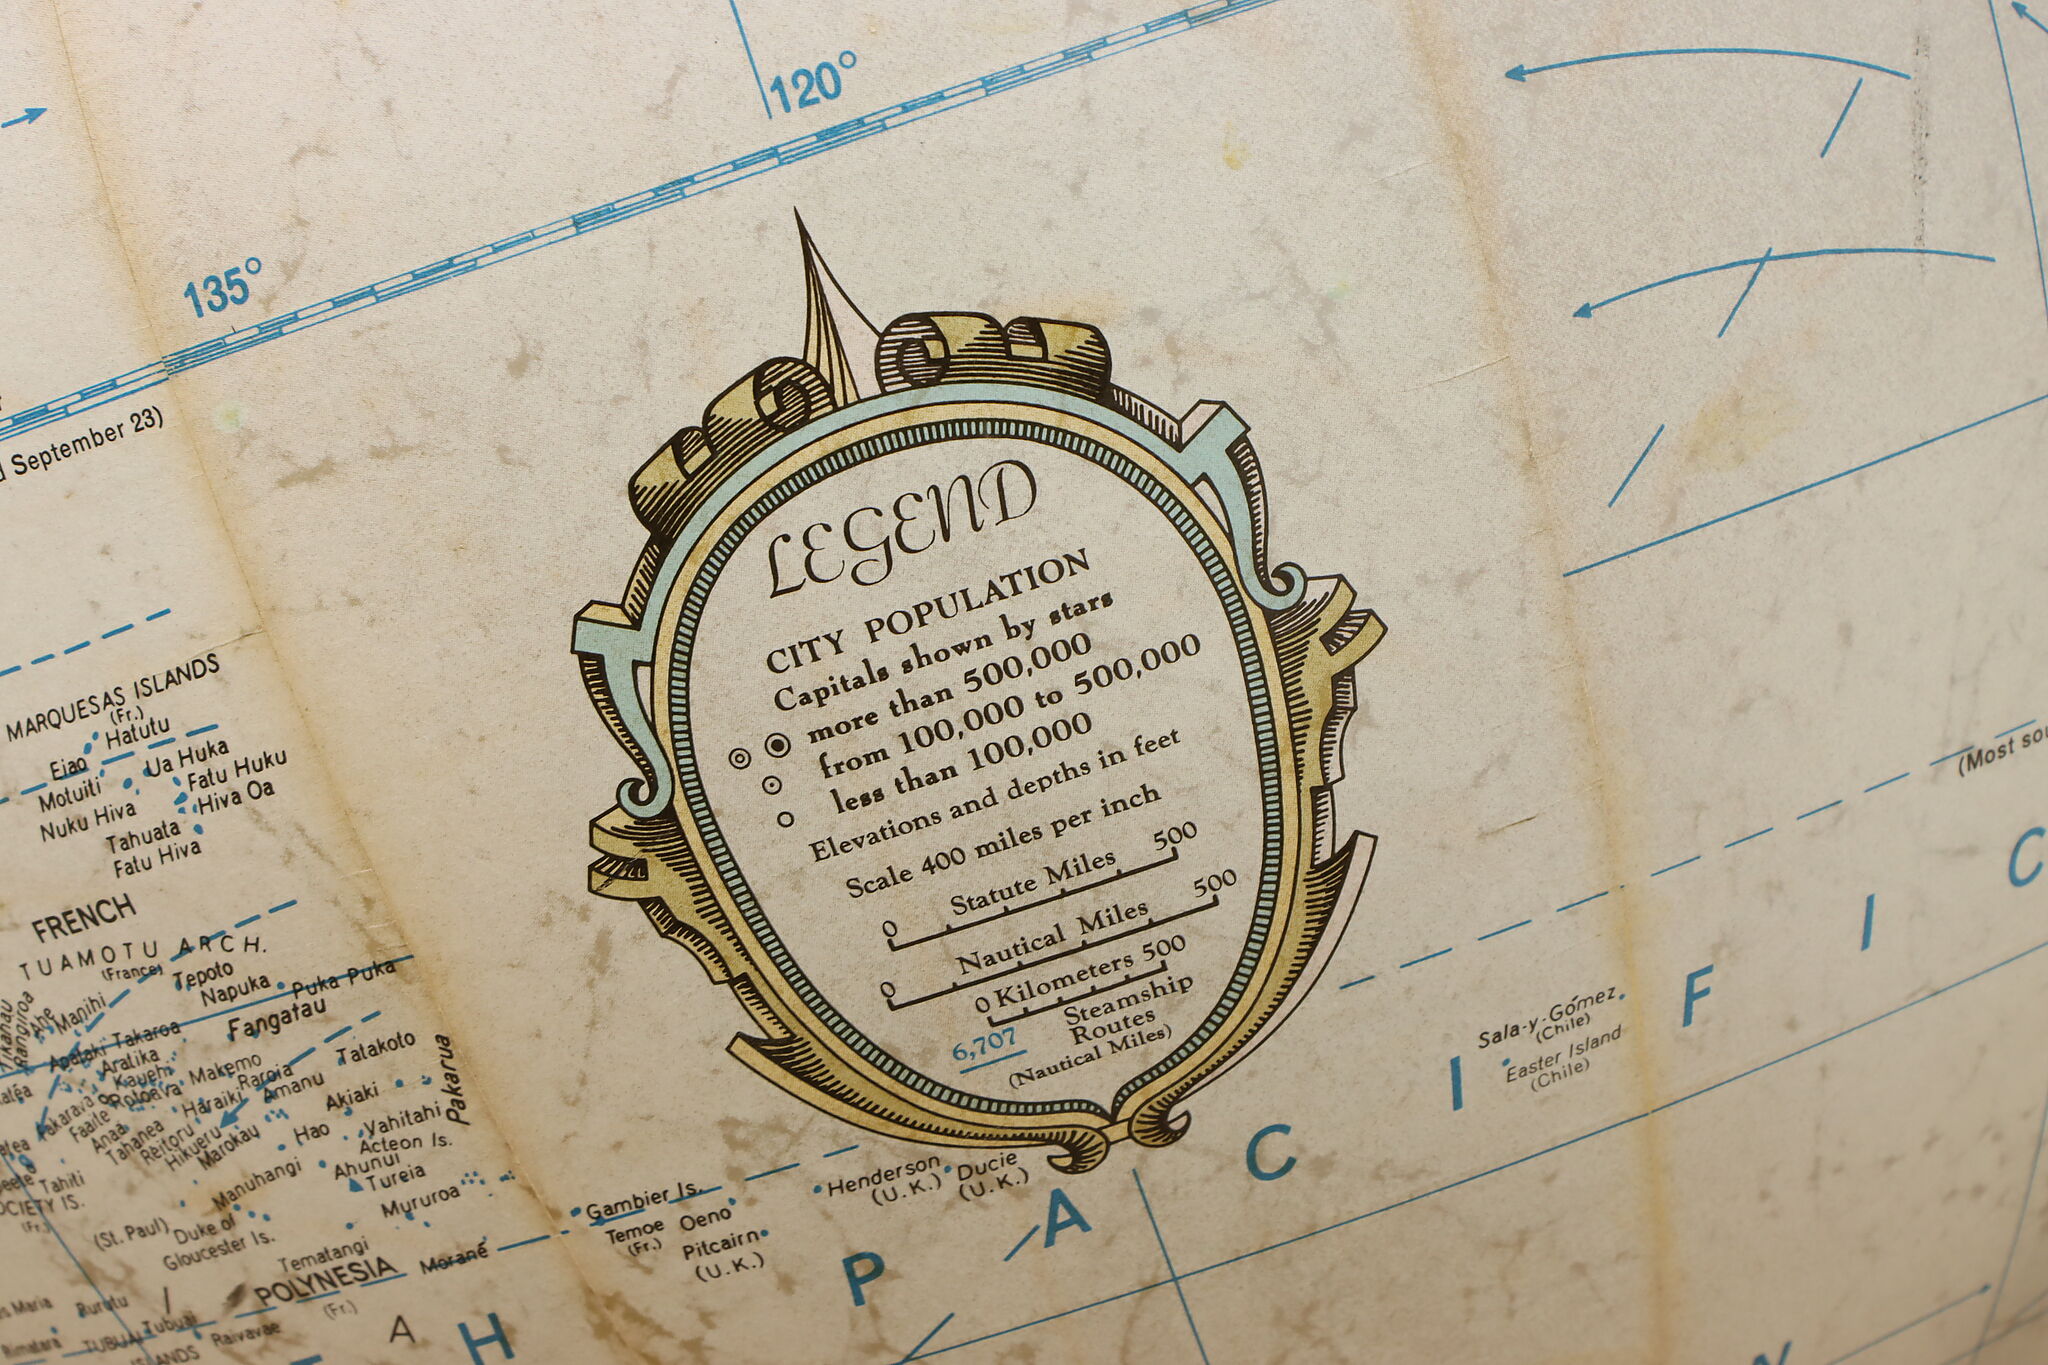 120°
135°
September 23)
LEGEND
CITY POPULATION
Capitals shown by stars
more than 500,000
from 100,000 to 500,000
less than 100,000
Elevations and depths in feet
Scale 400 miles per inch
0 Statute Miles 500
0 Nautical Miles 500
0 Kilometers 500
6,707 Steamship
Routes
(Nautical Miles)
MARQUESAS ISLANDS
(Fr.)
Hatutu
Eiao
Ua Huka
Motuiti
Fatu Huku
Nuku Hiva
Hiva Oa
Tahuata
Fatu Hiva
FRENCH
TUAMOTU ARCH.
(France)
Tepoto
Napuka
Puka Puka
Rangiroa
Ahe
Manihi
Fangatau
Apataki
Takaroa
Aratika
Kauehi
Tatakoto
Pakarua
Makemo
Raroia
Rotoava
Haraiki
Amanu
Akiaki
Faaite
Anaa
Tahanea
Reitoru
Hikueru
Marokau
Hao
Vahitahi
Acteon Is.
Ahunui
Tureia
Manuhangi
Mururoa
Tahiti
(Fr.)
(St. Paul)
Duke of
Gloucester Is.
Tematangi
POLYNESIA
(Fr.)
Morané
Rurutu
Rimatara
Tubuai
Raivavae
A
H
Gambier Is.
Temoe
(Fr.)
Oeno
Pitcairn
(U.K.)
Henderson
(U.K.)
Ducie
(U.K.)
PACIFIC
Sala-y-Gómez
(Chile)
Easter Island
(Chile)
(Most